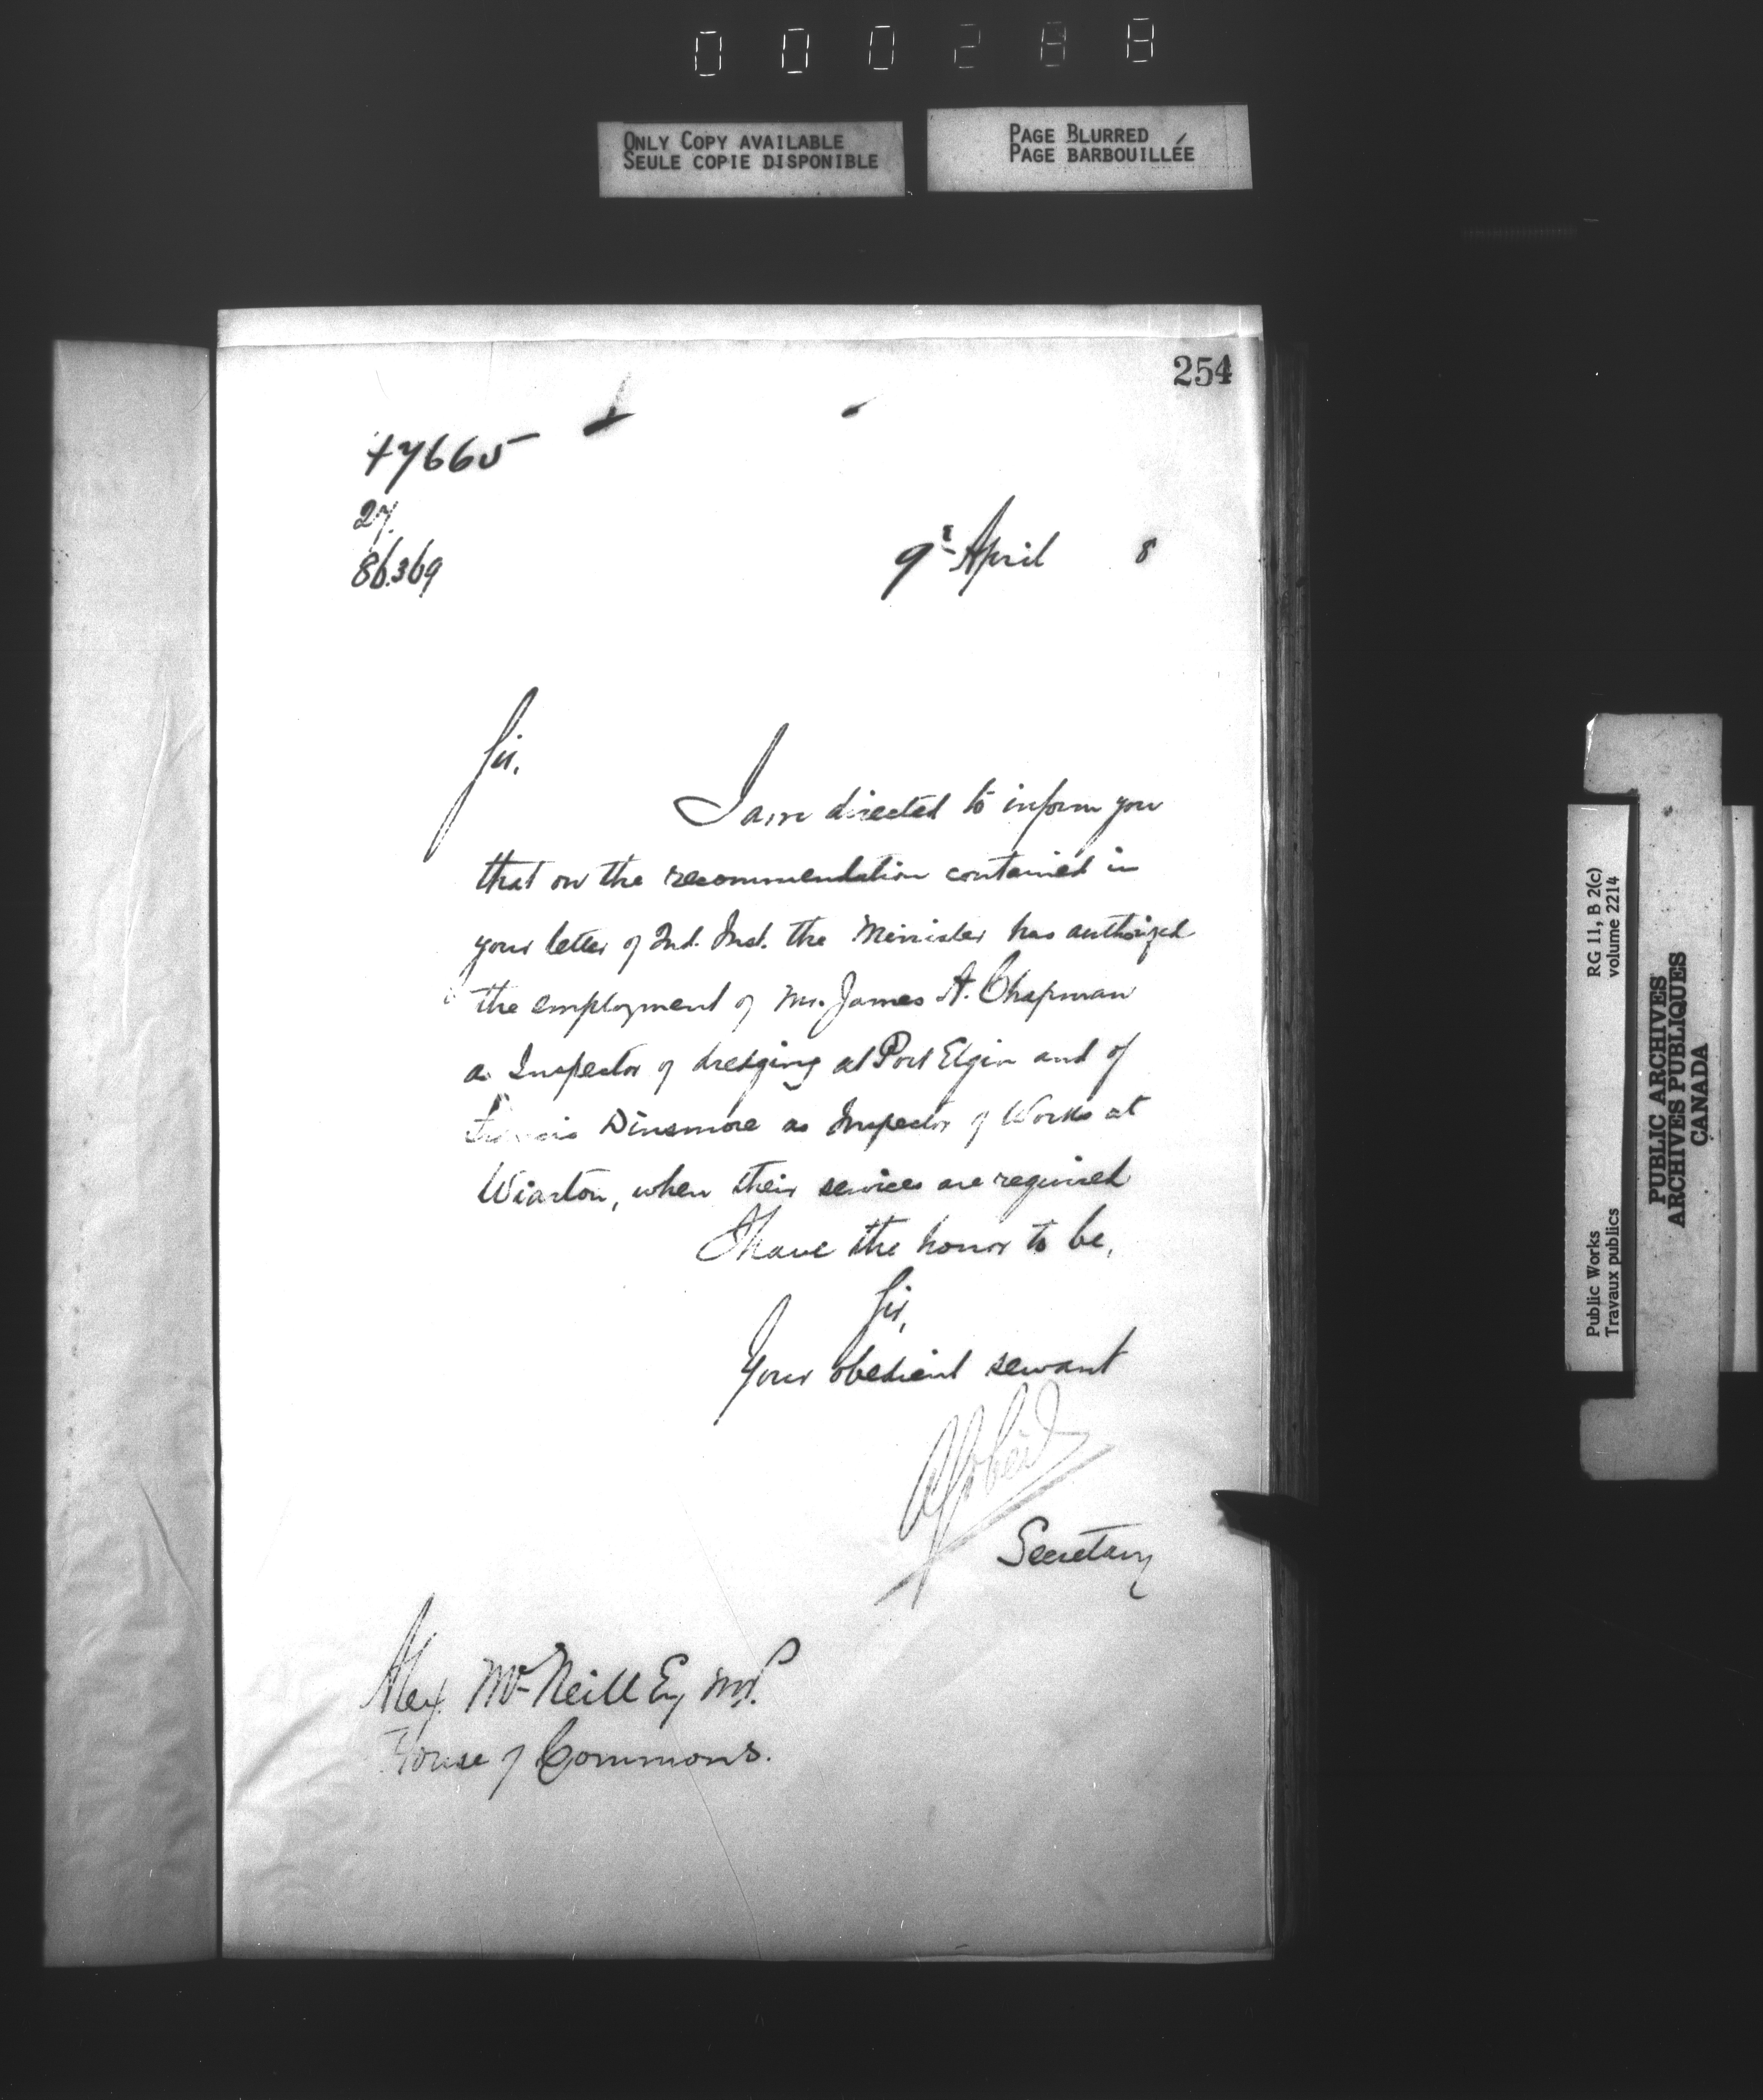 000288
ONLY COPY AVAILABLE
SEULE COPIE DISPONIBLE
PAGE BLURRED
PAGE BARBOUILLÉE
254
27
86369
9th April 8
Sir,
I am directed to inform you
that on the recommendation contained in
your letter of 2nd. Inst. the Minister has authorized
the employment of Mr. James A. Chapman
as Inspector of dredging at Port Elgin and of
Francis Dinsmore as Inspector of Works at
Wiarton, when their services are required
I have the honor to be,
Sir,
Your obedient servant
Secretary
Alex. McNeill Esq M.P.
House of Commons.
RG 11, B 2(c)
volume 2214
Public Works
Travaux publics
PUBLIC ARCHIVES
ARCHIVES PUBLIQUES
CANADA